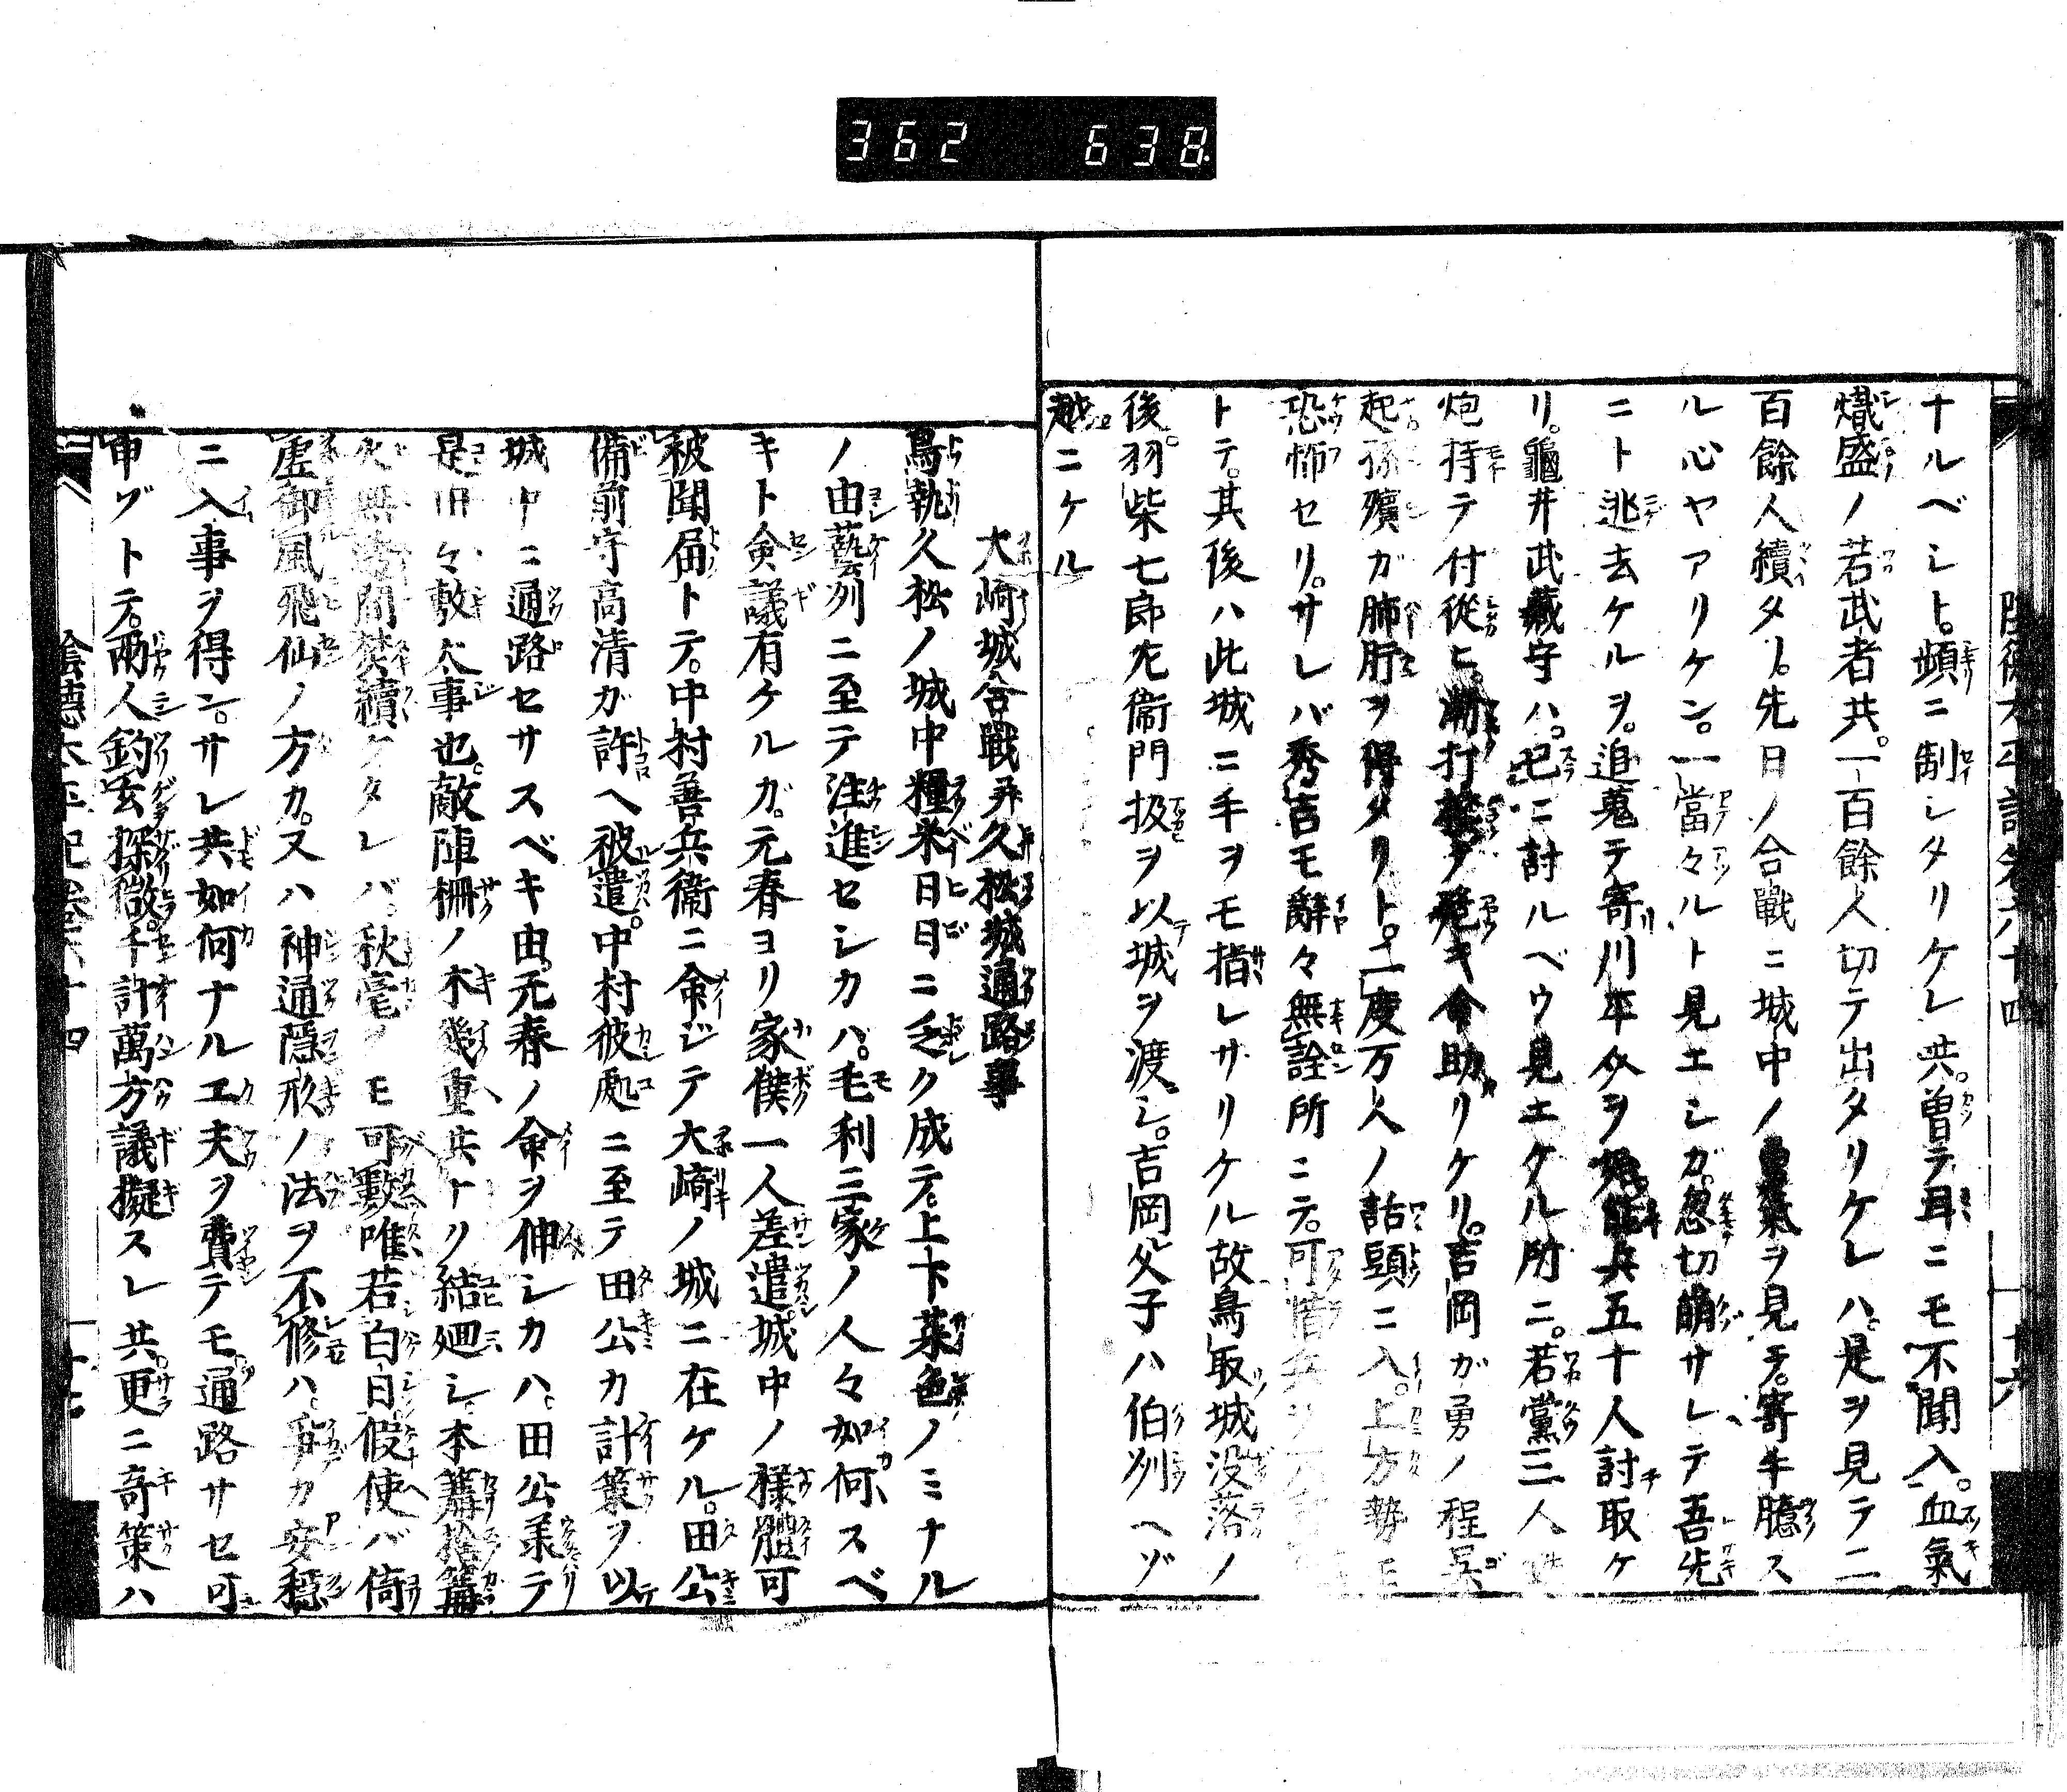 362 638
ナルベシト。頻ニ制シタリケレ共。曽テ耳ニモ不聞入。血氣
熾盛ノ若武者共。一百餘人切テ出タリケレハ。是ヲ見テ二
百餘人續タリ。先日ノ合戰ニ城中ノ勇氣ヲ見テ。寄手臆ス
ル心ヤアリケン。一當々ルト見エシガ。忽切崩サレテ吾先
ニト逃去ケルヲ。追蒐テ寄川平久ヲ始能兵五十人討取ケ
リ。龜井武藏守ハ。已ニ討ルベウ見エケル所ニ。若黨三人
炮持テ付從ヒ。漸打拂テ危キ命助リケリ。吉岡ガ勇ノ程呉
起孫臏ガ肺肝ヲ得タリト。一度万人ノ話頭ニ入。上方勢モ
恐怖セリ。サレバ秀吉モ辭々無詮所ニテ。可惜兵ヲ
トテ。其後ハ此城ニ手ヲモ指レサリケル故鳥取城没落ノ
後。羽柴七郎左衞門扱ヲ以城ヲ渡シ。吉岡父子ハ伯州ヘゾ
越ニケル
大崎城合戰并久松城通路事
鳥執久松ノ城中糧米日日ニ乏ク成テ。上下菜色ノミナル
ノ由藝州ニ至テ注進セシカハ。毛利三家ノ人々如何スベ
キト僉議有ケルガ。元春ヨリ家僕一人差遣。城中ノ様體可
被聞届トテ。中村善兵衞ニ命ジテ大崎ノ城ニ在ケル。田公
備前守高清ガ許ヘ被遣。中村彼処ニ至テ田公カ計策ヲ以
城中ニ通路セサスベキ由元春ノ命ヲ伸シカハ。田公羕テ
是旧々敷大事也。敵陣柵ノ木幾重共ナク結廻シ。本篝捨篝
火無透間焚續ケタレバ。秋毫ヲモ可數唯若白日假使バ倚
虚御風飛仙ノ方カ。又ハ神通隱形ノ法ヲ不修ハ。爭カ安穩
ニ入事ヲ得ン。サレ共如何ナルエ夫ヲ費テモ通路サセ可
申ヅトテ。兩人釣玄探微。千計萬方議擬スレ共。更ニ奇策ハ